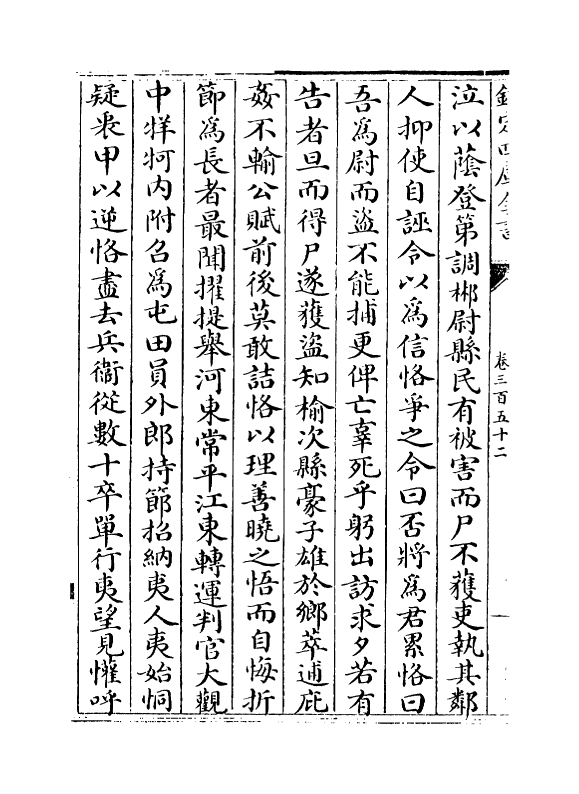 欽定四庫全書
卷三百五十二
泣以蔭登第調郴尉縣民有被害而尸不獲吏執其鄰
人抑使自誣令以為信恪爭之令曰否將為君累恪曰
吾為尉而盜不能捕更俾亡辜死乎躬出訪求夕若有
告者旦而得尸遂獲盜知榆次縣豪子雄於鄉萃逋庇
姦不輸公賦前後莫敢詰恪以理善曉之悟而自悔折
節為長者最聞擢提舉河東常平江東轉運判官大觀
中牂牁内附召為屯田員外郎持節招納夷人夷始恫
疑裵甲以逆恪盡去兵衛從數十卒單行夷望見懽呼